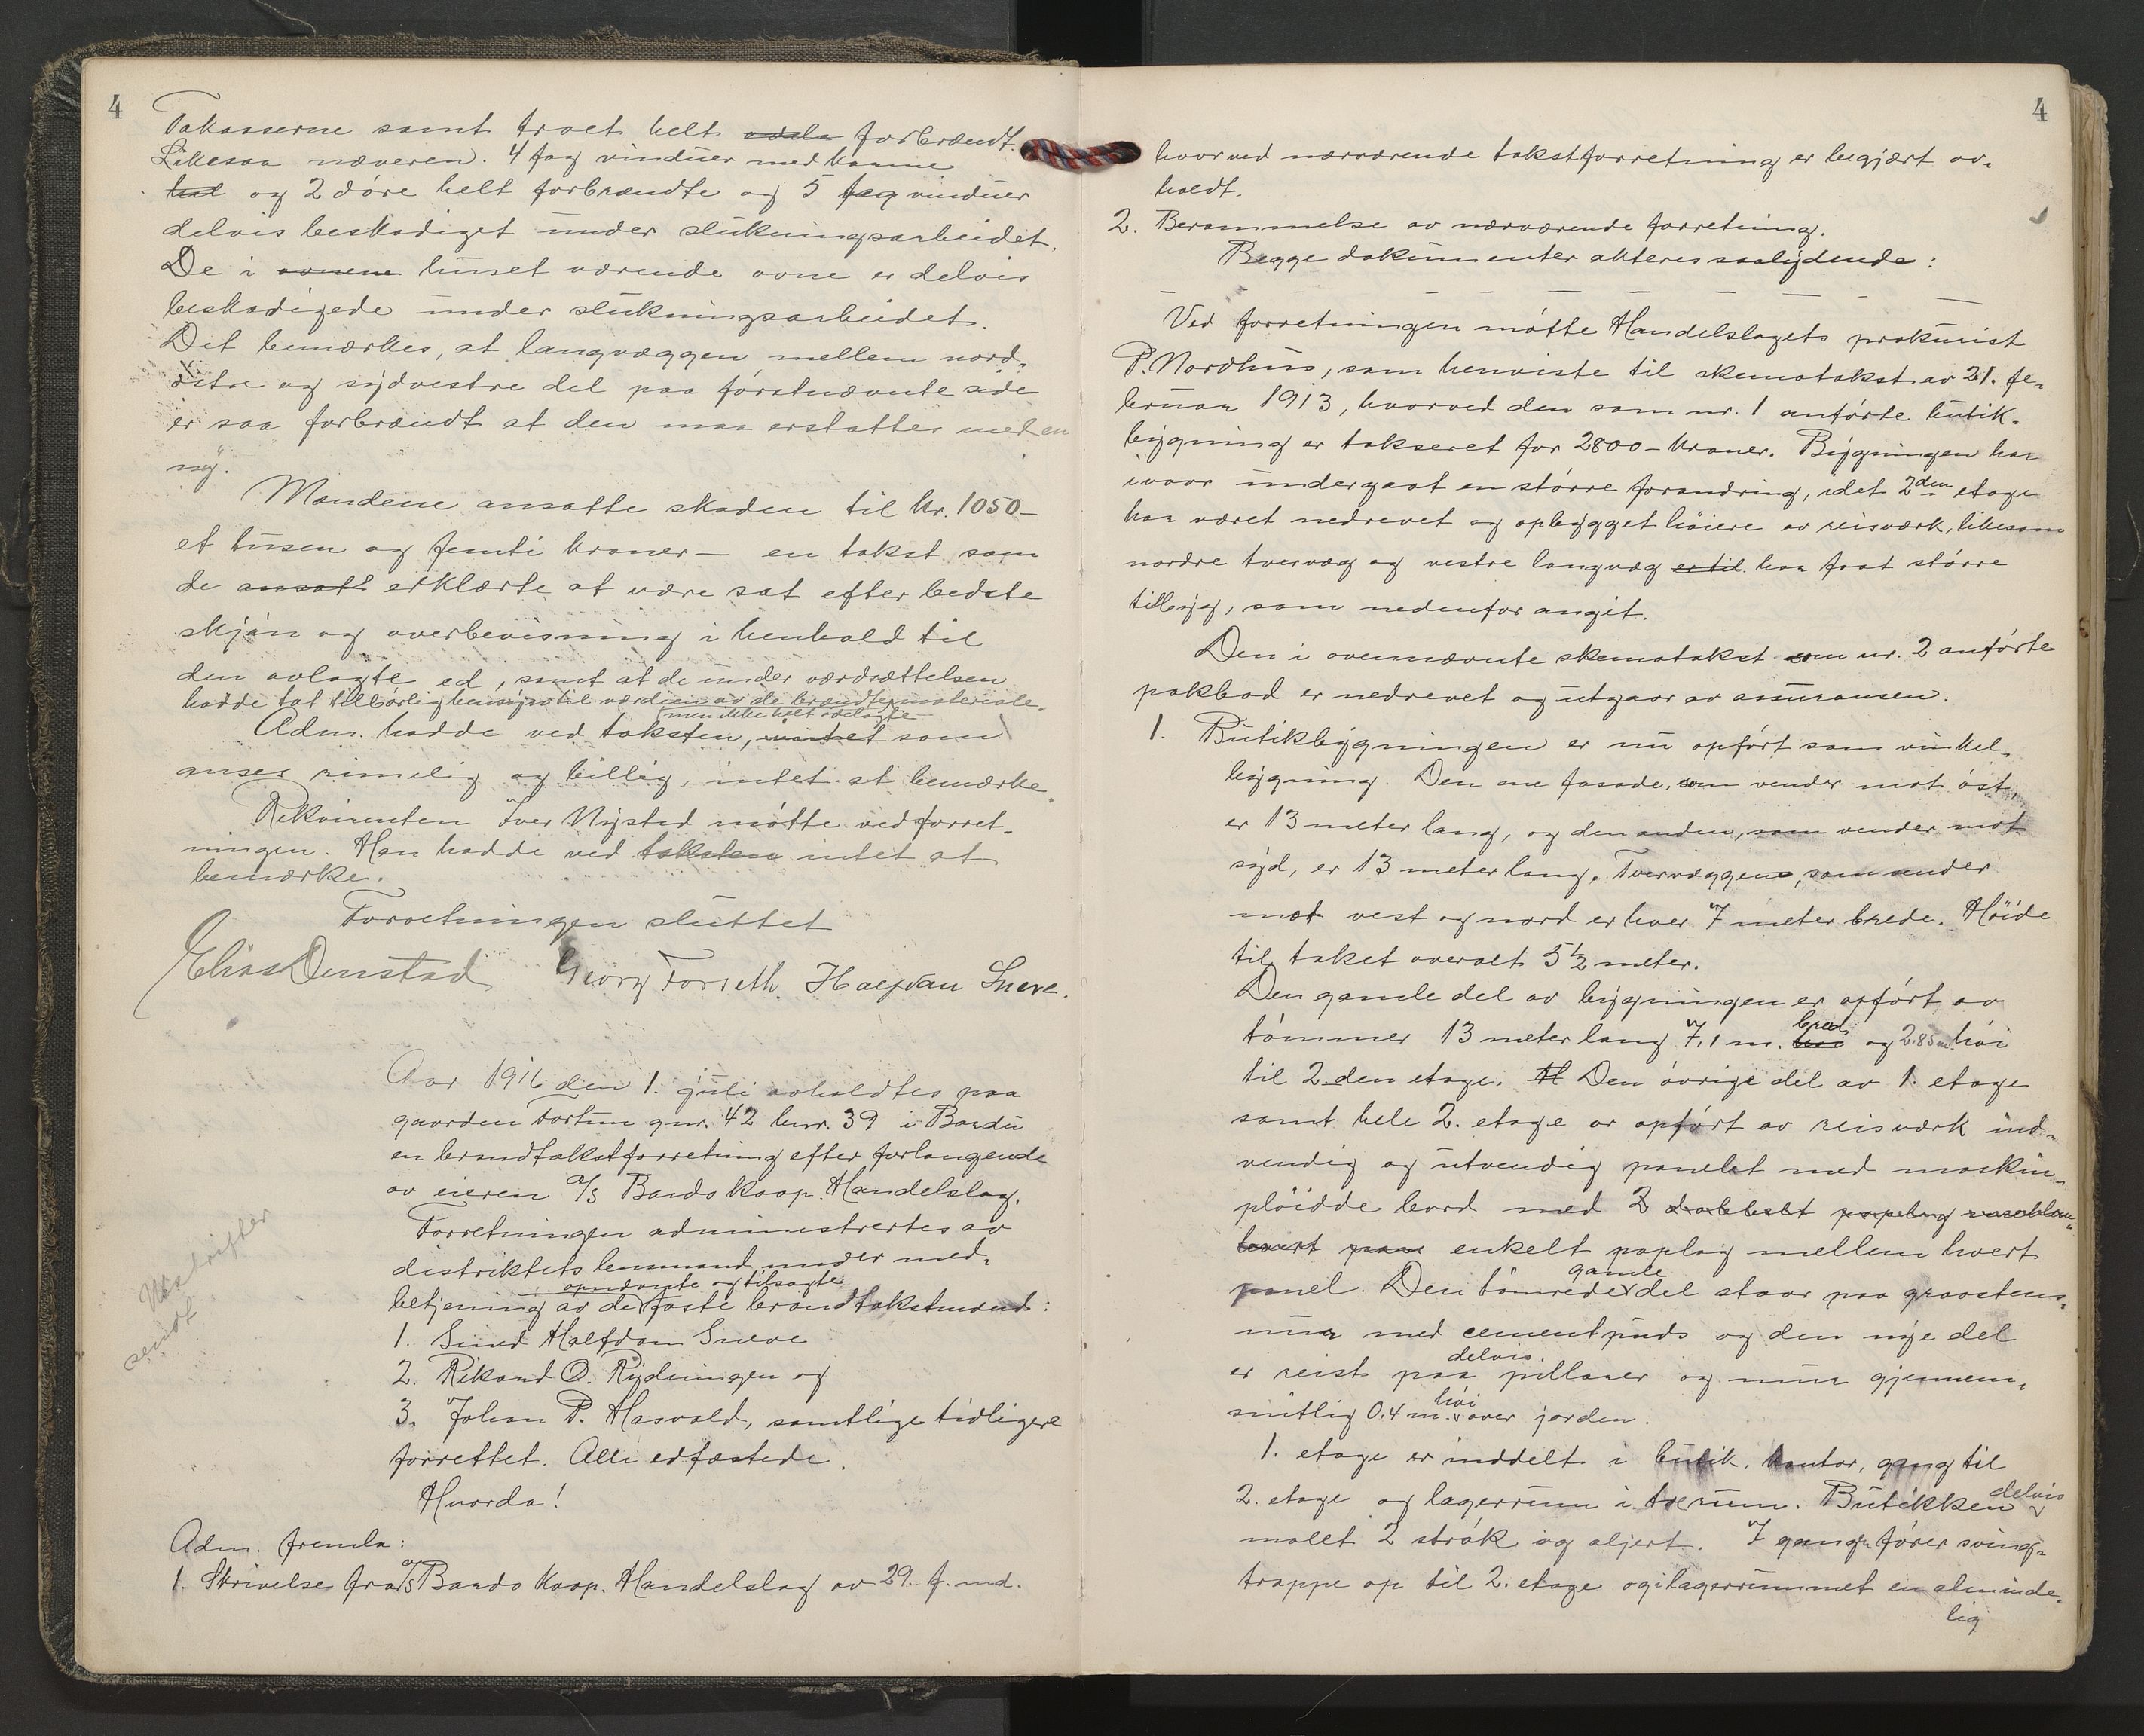 4
Takaaserne samt troet helt odela forbrændt.
Likesaa næveren. 4 fag vinduer med karme
hel og 2 døre helt forbrændte og 5 fag vinduer
delvis beskadiget under slukningsarbeidet.
De i ovnene huset værende ovne er delvis
beskadigede under slukningsarbeidet.
Det bemærkes, at langvæggen mellem nord-
østre og sydvestre del paa førstnævnte side
er saa forbrændt at den maa erstattes med en
ny.
Mændene ansatte skaden til kr. 1050 –
et tusen og femti kroner – en takst som
de ansatt erklærte at være sat efter bedste
skjøn og overbevisning i henhold til
den avlagte ed, samt at de under værdsættelsen
hadde tat tilbørlig hensyn til værdien av de brændte materiale.
men ikke helt ødelagte
Adm. hadde ved taksten, intet som
anses rimelig og billig, intet at bemærke.
Rekvirenten Iver Nysted møtte ved forret-
ningen. Han hadde ved taksten intet at
bemærke.
Forretningen sluttet
Elias Denstad Georg Forseth. Halfdan Sneve.
Aar 1916 den 1. juli avholdtes paa
gaarden Fortun gnr. 42 bnr. 39 i Bardu
en brandtakstforretning efter forlangende
av eieren A/S Bardo koop. Handelslag.
Forretningen administrertes av
distriktets lensmand under med-
opnævnte og tilsagte
betjening av de faste brandtakstmænd:
1. Smed Halfdan Sneve
2. Rikard O. Rydningen og
3. Johan P. Hasvold, samtlige tidligere
forrettet. Alle edfæstede.
Hvorda!
Utskrifter
sendt
Adm. fremla:
1. Skrivelse fra A/S Bardo Koop. Handelslag av 29. f. md.
4
hvorved nærværende takstforretning er begjært av-
holdt.
2. Berammelse av nærværende forretning.
Begge dokumenter akteres saalydende:
– – – – – – – – –
Ved forretningen møtte Handelslagets prokurist
P. Nordhus, som henviste til skematakst av 21. fe-
bruar 1913, hvorved den som nr. 1 anførte butik-
bygning er takseret for 2800 – kroner. Bygningen har
ivaar undergaat en større forandring, idet 2den etage
har været nedrevet og opbygget høiere av reisværk, likesom
nordre tvervæg og vestre langvæg er til har faat større
tilbyg, som nedenfor angit.
Den i ovennævnte skematakst som nr. 2 anførte
pakbod er nedrevet og utgaar av assuransen.
1. Butikbygningen er nu opført som vinkel-
bygning. Den ene fasade, som vender mot øst,
er 13 meter lang, og den anden, som vender mot
syd, er 13 meter lang. Tvervæggene, som vender
mot vest og nord er hver 7 meter brede. Høide
til taket overalt 5 1/2 meter.
Den gamle del av bygningen er opført av
bred
tømmer 13 meter lang 7,1 m. høi og 2.85 m. høi
til 2.den etage. Al Den øvrige del av 1. etage
samt hele 2. etage er opført av reisværk ind-
vendig og utvendig panelet med maskin-
pløidde bord med 2 dobbelt paplag
enkelt paplag mellem hvert
gamle
panel. Den tømrede del staar paa graastens-
mur med cementpuds og den nye del
delvis.
er reist paa pillarer og mur gjennem-
høi
snitlig 0.4 m. over jorden.
1. etage er inddelt i butik, kontor, gang til
2. etage og lagerrum i tre rum. Butikken delvis
malt 2 strøk og oljert. I gangen fører sving-
trappe op til 2. etage og i lagerrummet en alminde-
lig